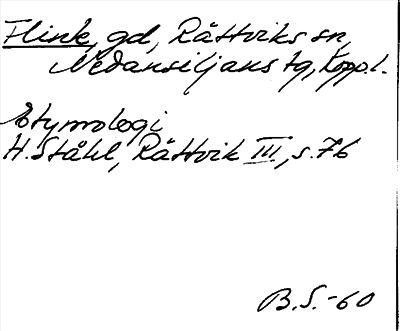 Flink, gd, Rättviks sn,
Nedansiljans tg, Kopp.l.
Etymologi
H. Ståhl, Rättvik III, s. 76
B.S.-60